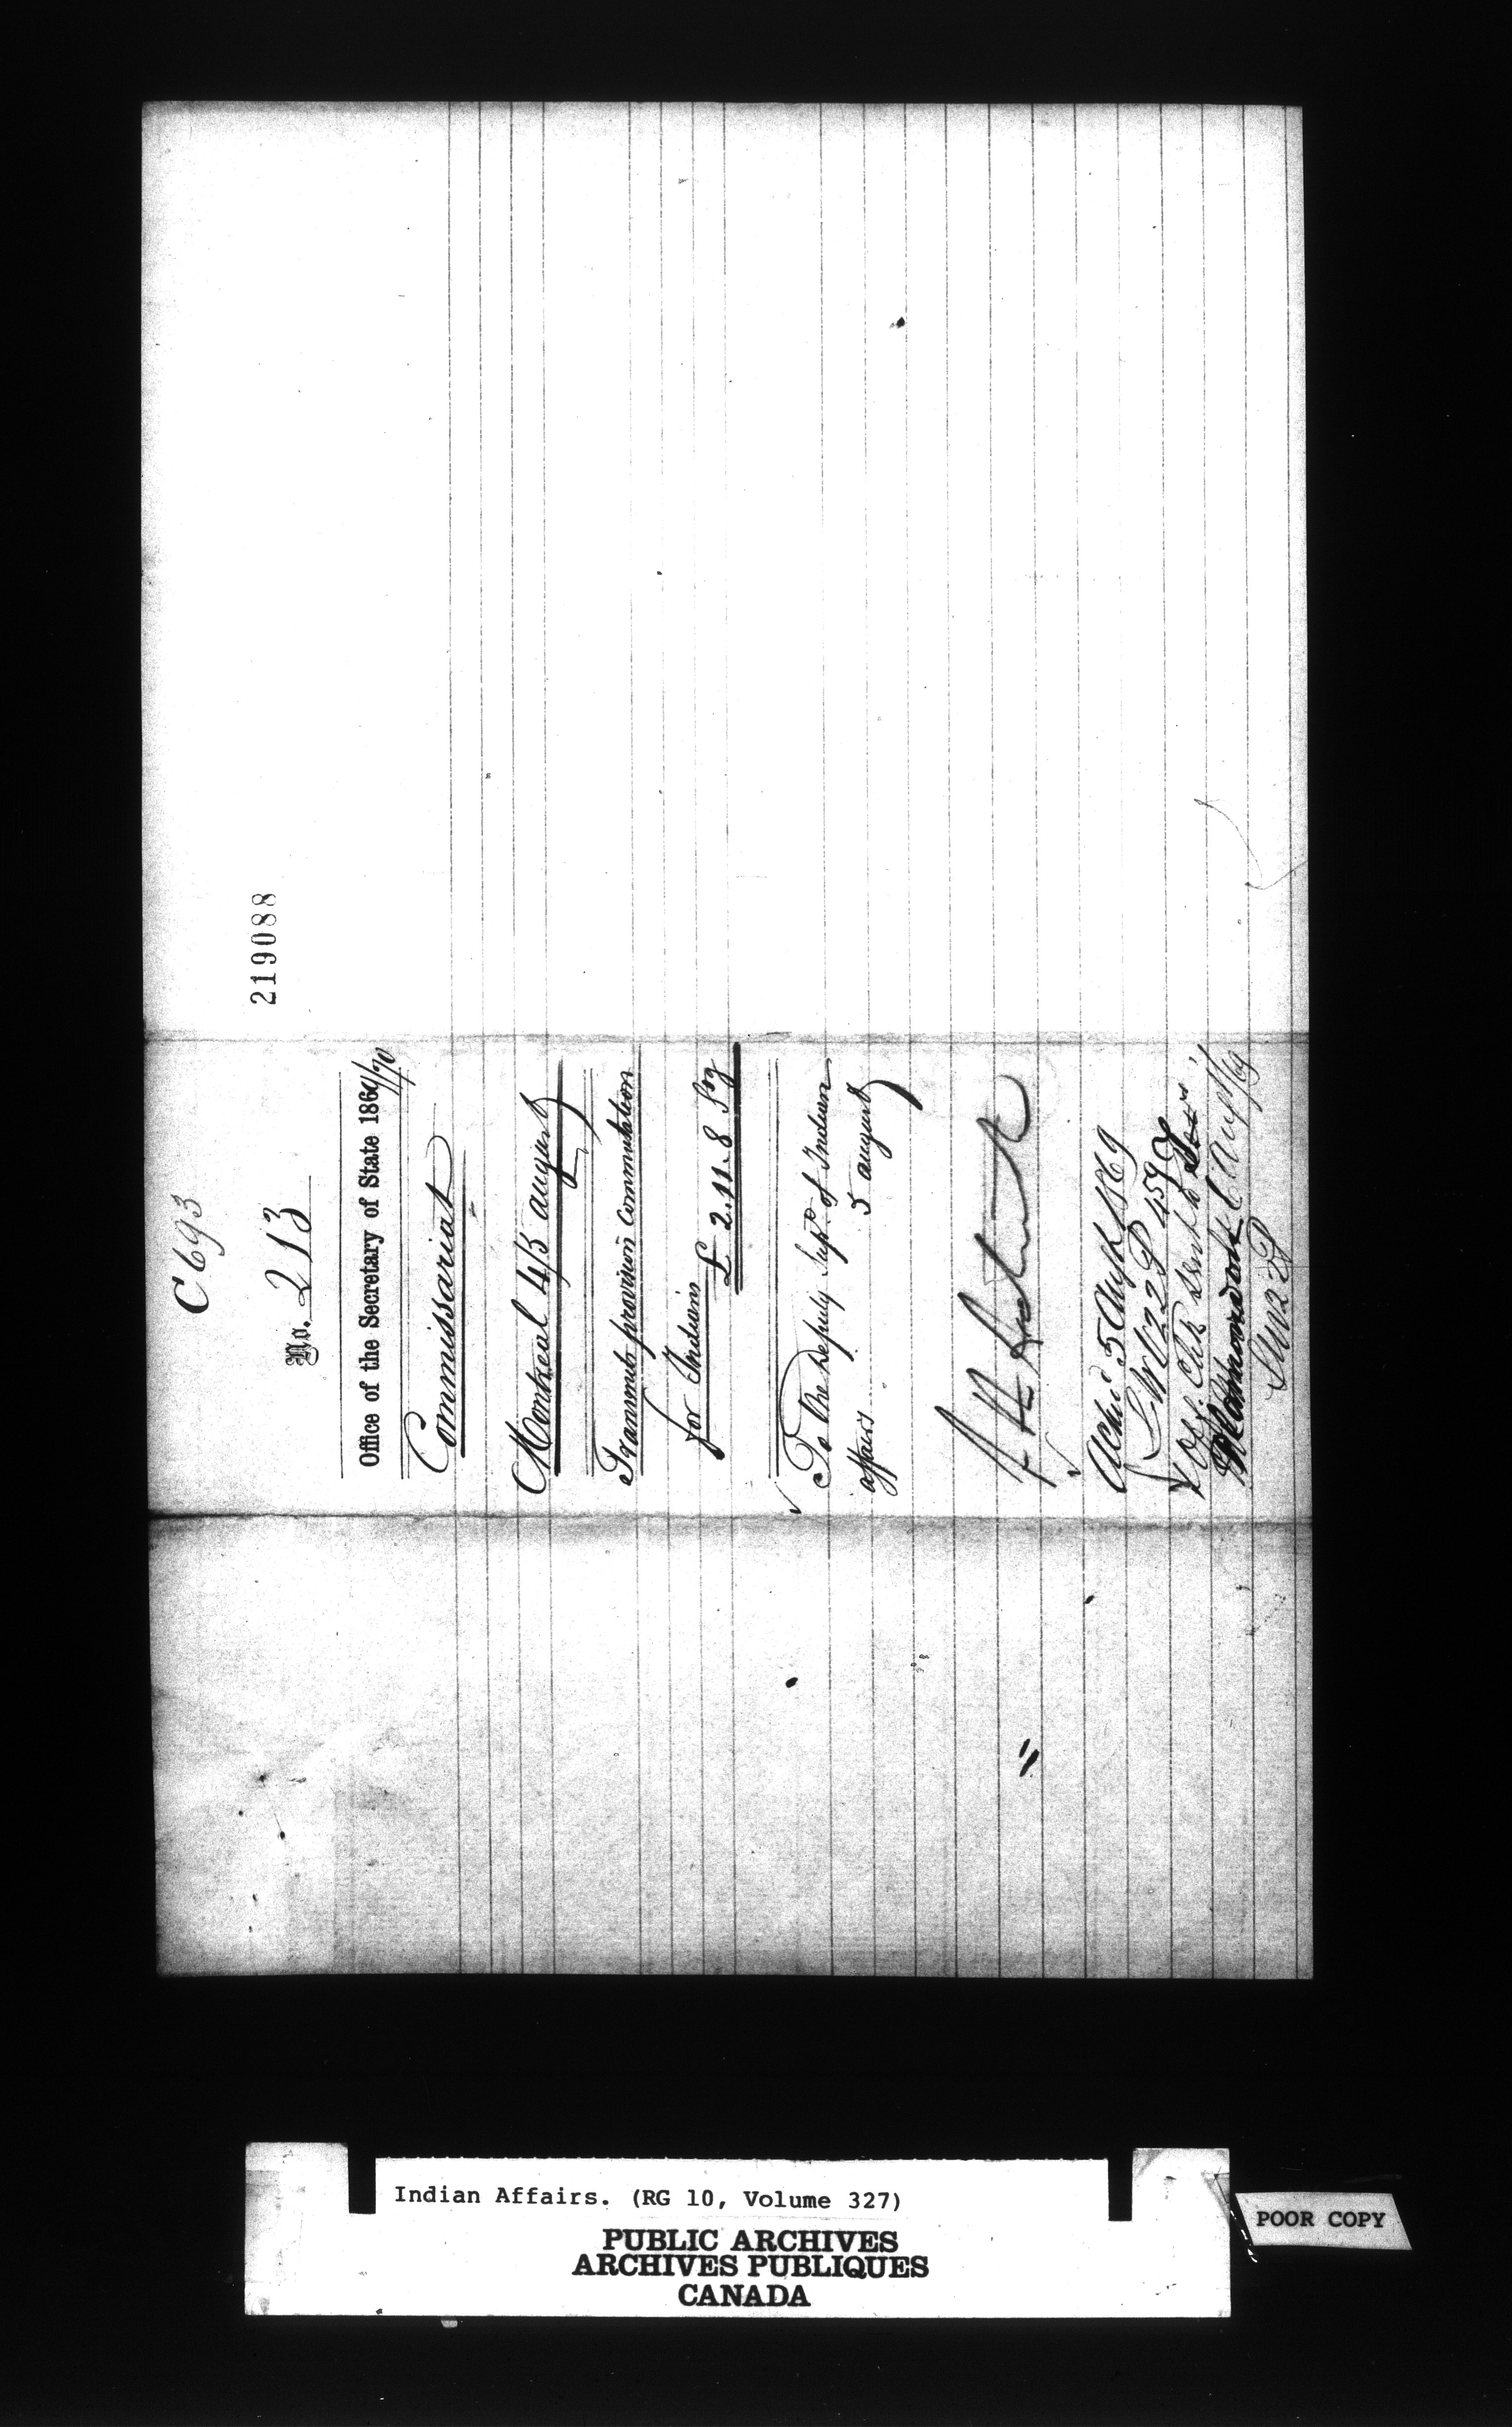 C 693
219088
No. 213
Office of the Secretary of State 1869/70
Commissariat
Montreal 4/5 august
Transmits provision Commutation
for Indians
£ 2.11.8 Stg
To the Deputy Supt. of Indian
affairs 5 august
Ackd 5 Augt 1869
LW 22 P 459
Off. Chk sent to
6 Aug /69
LW 22 P
Indian Affairs. (RG 10, Volume 327)
PUBLIC ARCHIVES
ARCHIVES PUBLIQUES
CANADA
POOR COPY